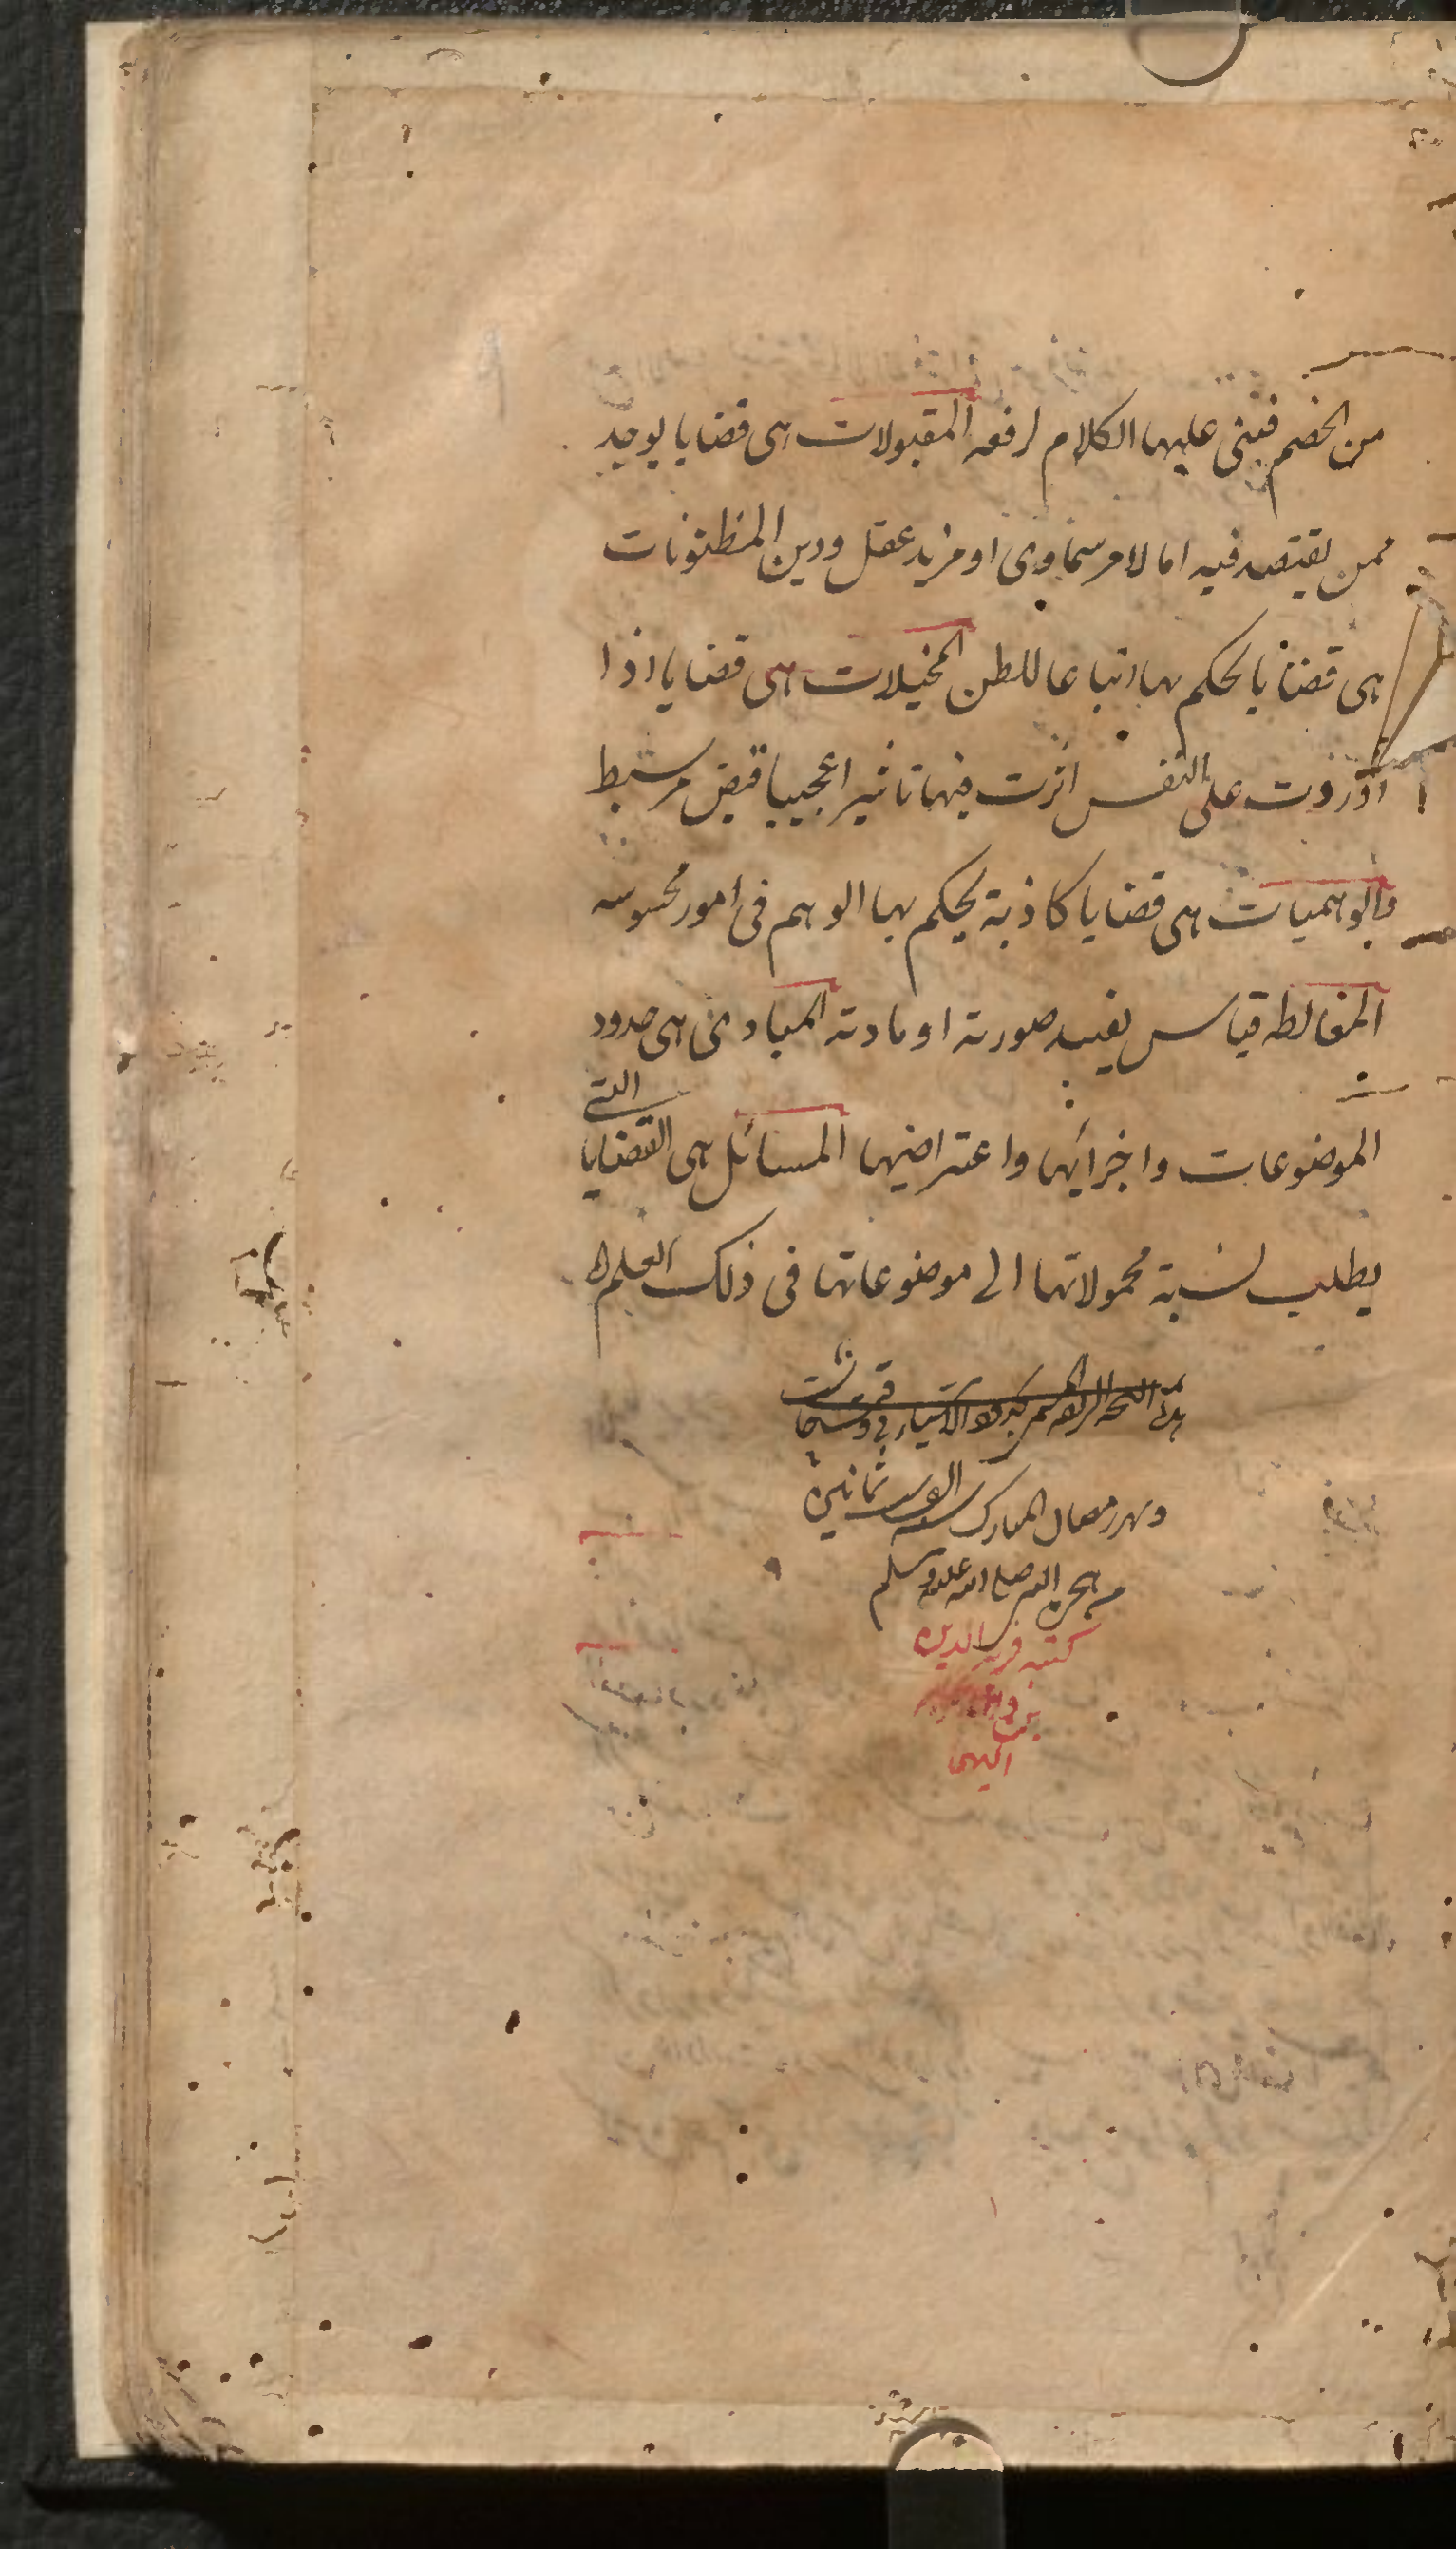 من الخصم فيبنى عليها الكلام لرفعه المقبولات هى قضايا يوخد
ممن يعتقد فيه اما لامر سماوى او مزيد عقل ودين المظنونات
هى قضايا يحكم بها اتباعا للظن المخيلات هى قضايا اذا
اوردت على النفس اثرت فيها تاثيرا عجيبا قبض و بسط
والوهميات هى قضايا كاذبة يحكم بها الوهم فى امور محسوسه
المغالطه قياس يفسد صورته او مادته المبادى هى حدود
الموضوعات واجزائها واعتراضها المسائل هى القضايا التى
يطلب نسبة محمولاتها الى موضوعاتها فى ذلك العلم
رمضان المبارك سنه ثمانين
من هجرة النبى صلى الله عليه وسلم
كتبه الدين
بن